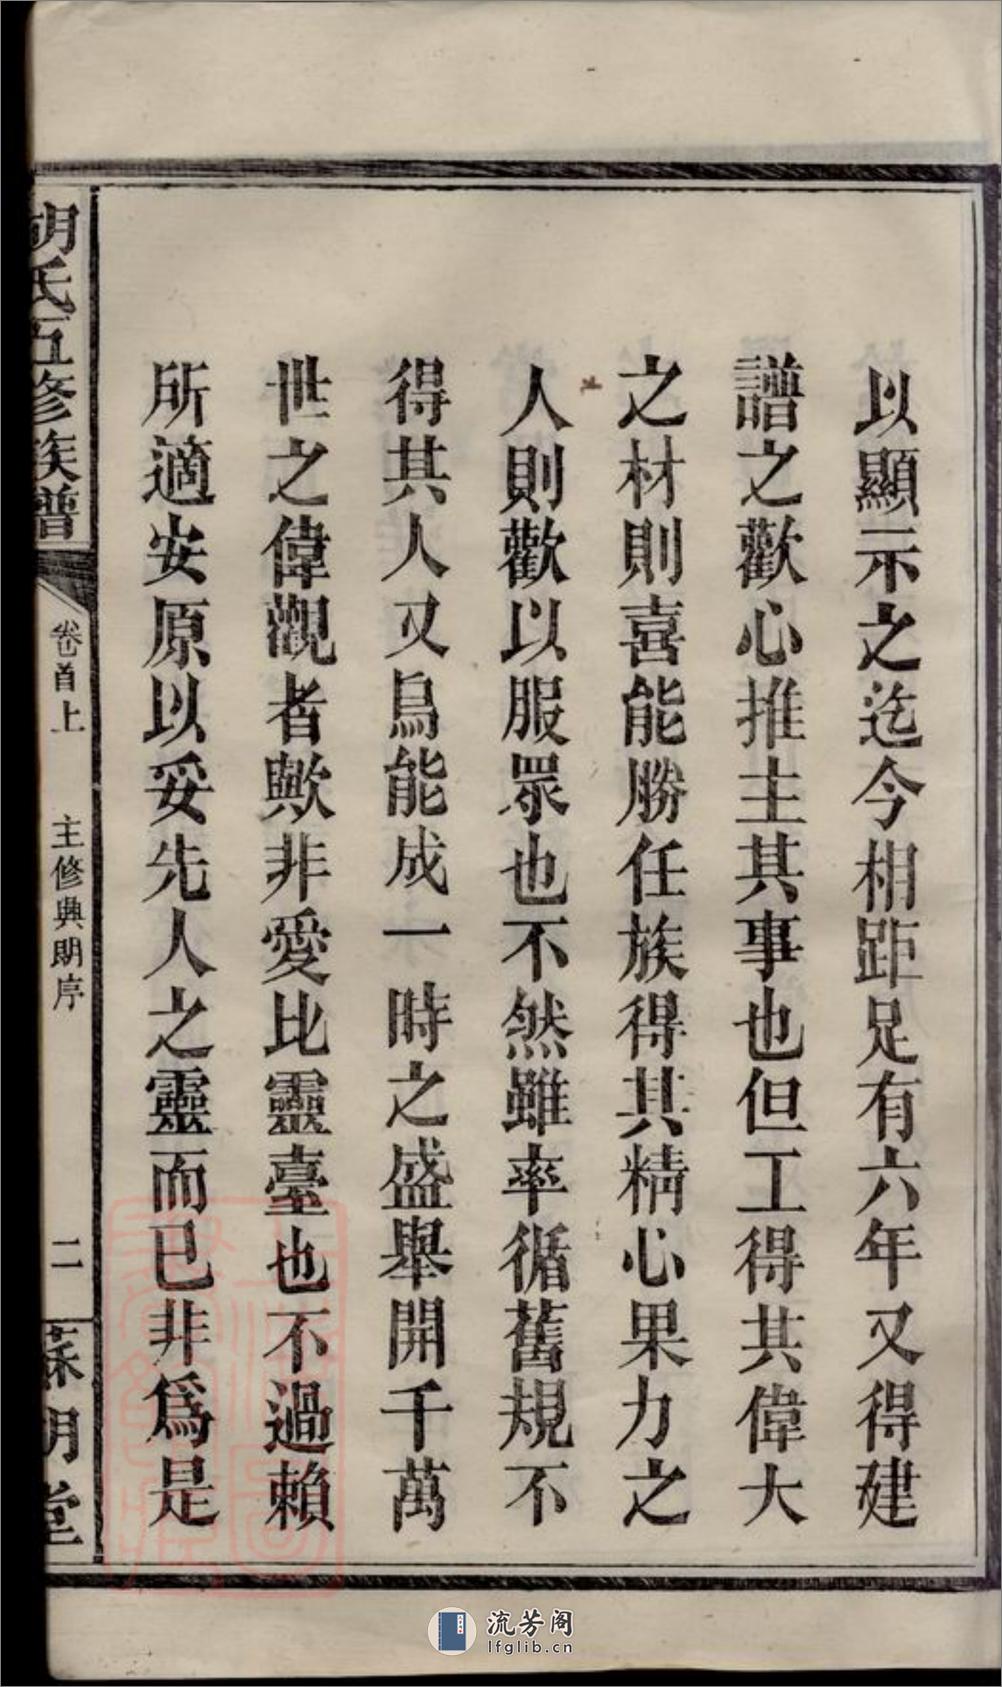 以顯示之迄今相距足有六年又得建
譜之歡心推主其事也但工得其偉大
之材則喜能勝任族得其精心果力之
人則歡以服眾也不然雖率循舊規不
得其人又烏能成一時之盛舉開千萬
世之偉觀者歟非愛比靈臺也不過賴
所適安原以妥先人之靈而已非為是
胡氏五修族譜
卷首上
主修興朋序
二
明堂
流芳阁
lfglib.cn